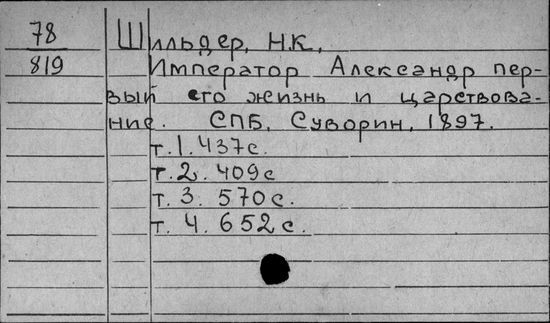 78
819
Шильдер, Н.К.,
Император Александр пер-
вый его жизнь и царствова-
ние. СПБ, Суворин, 1897.
т. 1. 437с.
т. 2. 409с
т. 3. 570с.
т. 4. 652с.